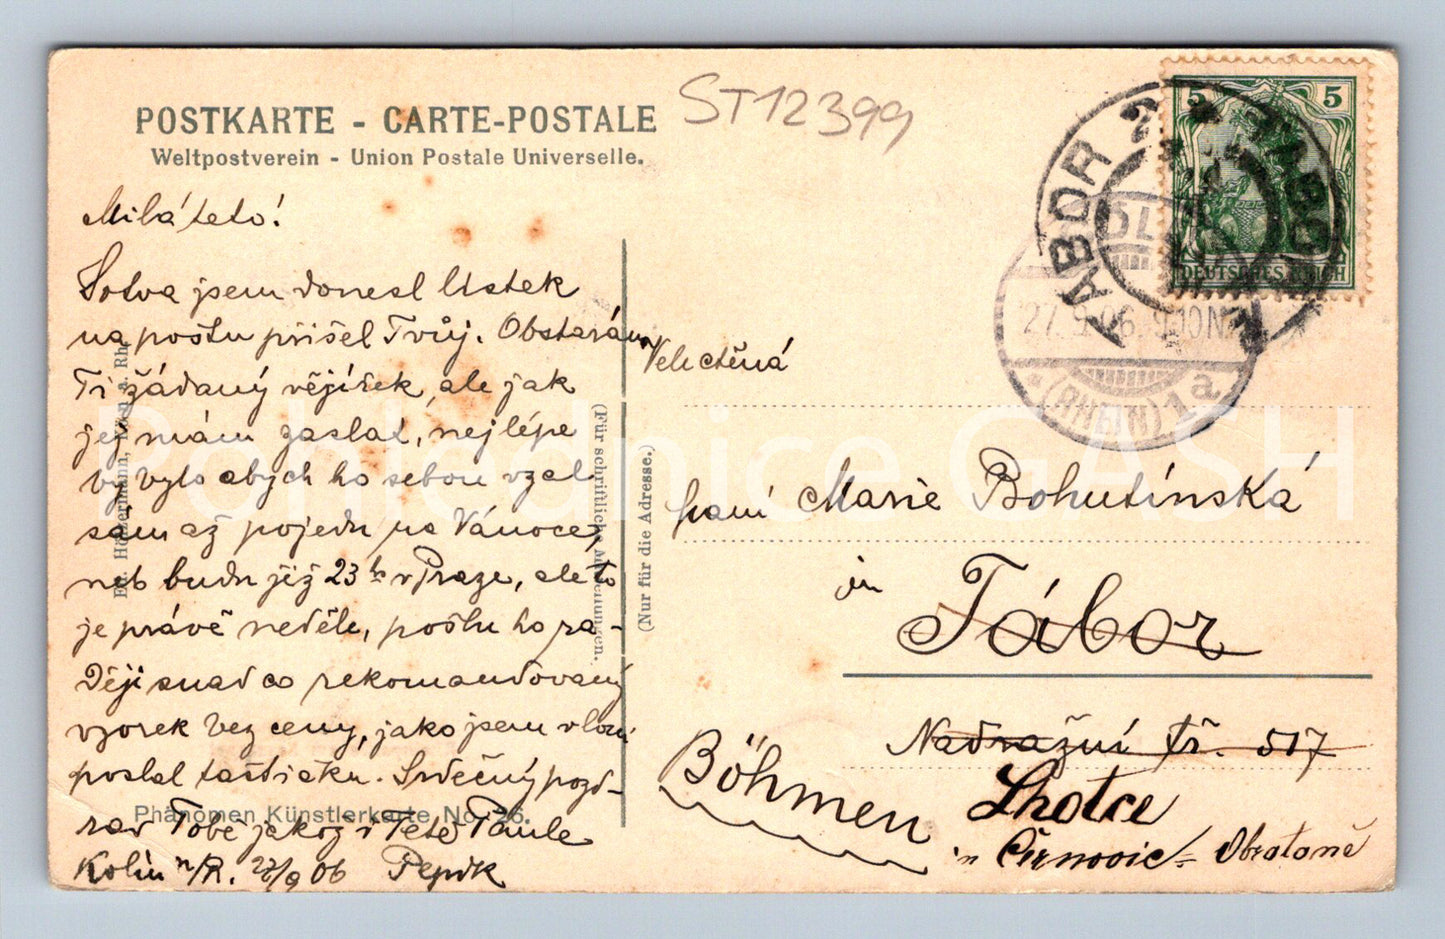 POSTKARTE - CARTE-POSTALE
Weltpostverein - Union Postale Universelle.
ST12399
5 5
DEUTSCHES REICH
TABOR
TABOR
27.9.06. 9-10N.
(RHEIN) 1a.
Milá teto!
Sotva jsem donesl lístek
na poštu přišel Tvůj. Obstarám
Ti žádaný vějířek, ale jak
jej mám zaslat, nejlépe
by bylo abych ho sebou vzal
sám až pojedu na Vánoce,
neb budu již 23ho v Praze, ale to
je právě neděle, pošlu ho ra-
ději snad co rekomandovaný
vzorek bez ceny, jako jsem vloni
poslal taštičku. Srdečný pozd-
rav Tobě jakož i Tetě Paule
Kolín n/R. 27/9 06 Pepík
(Für schriftliche Mitteilungen.
(Nur für die Adresse.)
Phänomen Künstlerkarte No. 26.
Velectěná
paní Marie Bohutínská
in Tábor
Nadražní tř. 517
Böhmen
Lhotce
Obrataně
Pohlednice GASH